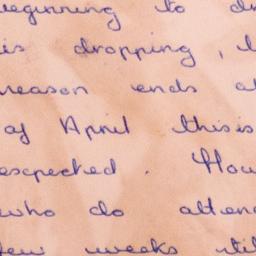 beginning to
is dropping,
season ends
of April this is
escpected. How
who do atten
few weeks til